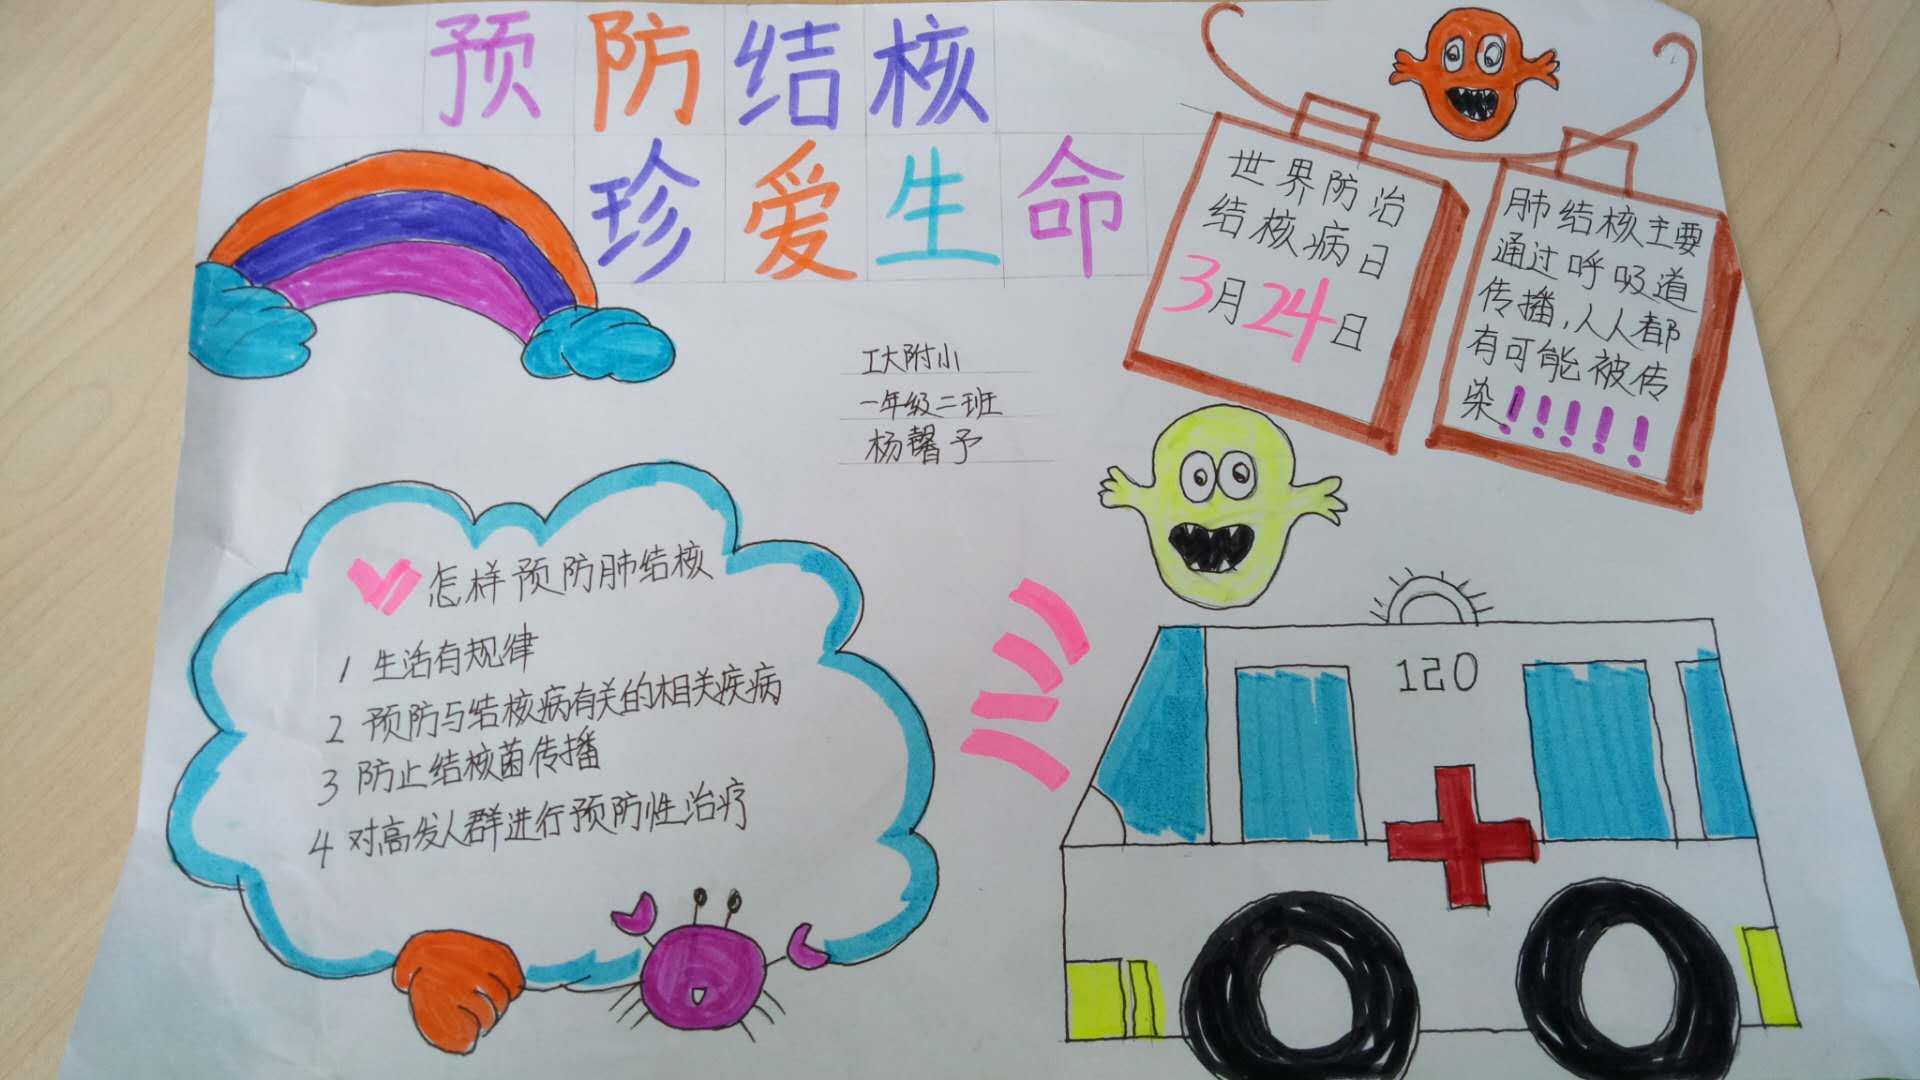 预防结核
珍爱生命
世界防治
结核病日
3月24日
肺结核主要
通过呼吸道
传播,人人都
有可能被传
染!!!!!
工大附小
一年级二班
杨馨予
怎样预防肺结核
1 生活有规律
2 预防与结核病有关的相关疾病
3 防止结核菌传播
4 对高发人群进行预防性治疗
120